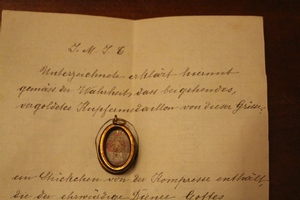 J. M. J. C
Unterzeichnete erklärt hiermit
gemäss der Wahrheit, dass beigehendes,
vergoldetes Kupfermedaillon von dieser Grösse
ein Stückchen von der Kompresse enthält,
die der ehrwürdige Diener Gottes